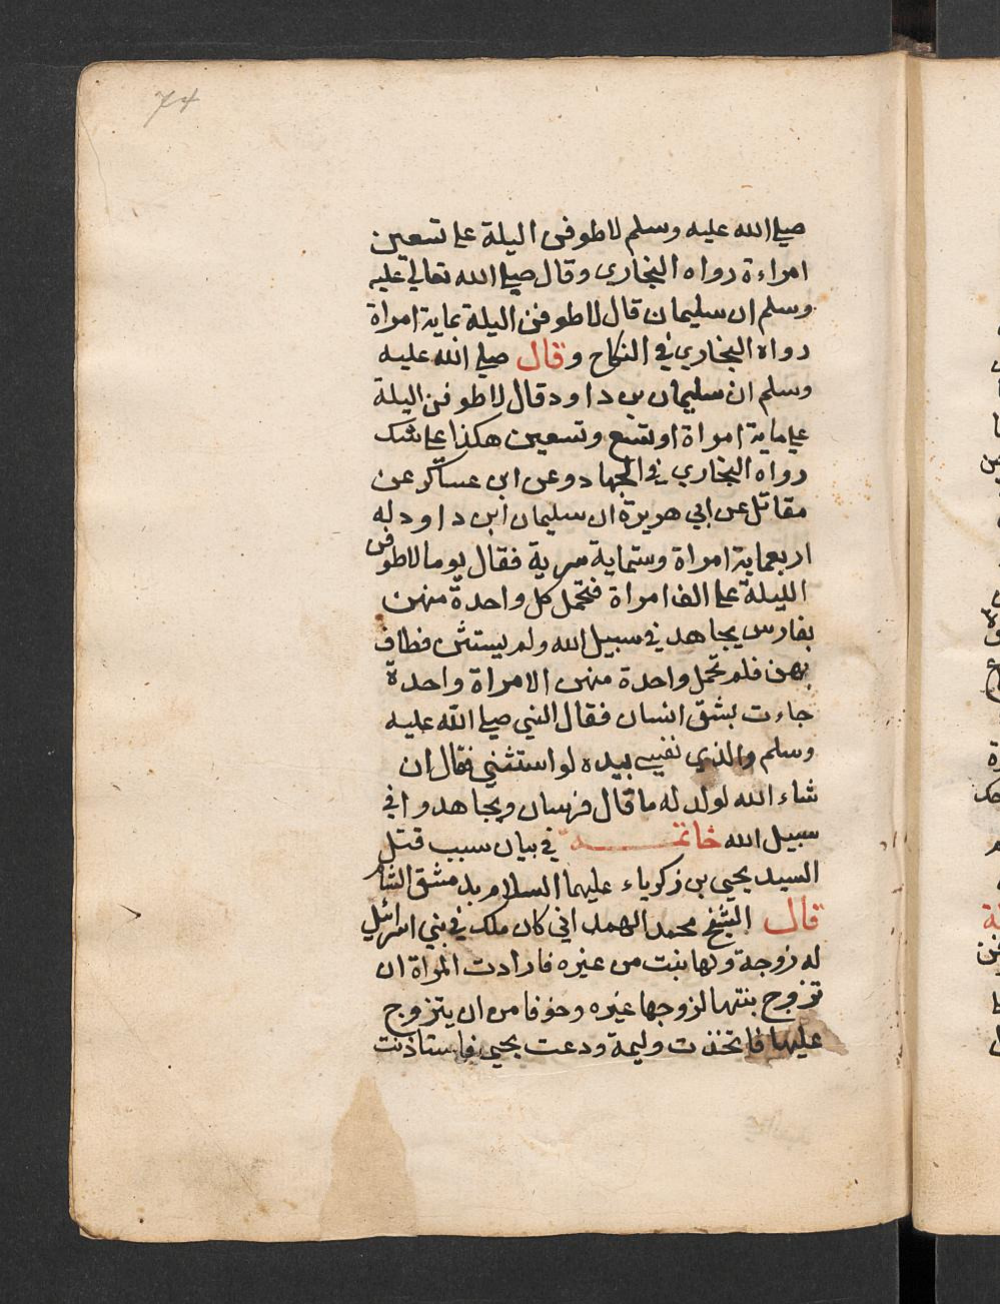 74
صلي الله عليه وسلم لاطوفن اليلة علي تسعين
امراءة رواه البخاري وقال صلي الله تعالي عليه
وسلم ان سليمان قال لاطوفن اليلة بماية امراة
رواه البخاري في النكاح وقال صلي الله عليه
وسلم ان سليمان بن داود قال لاطوفن اليلة
علي ماية امراة او تسع وتسعين هكذا علي شك
رواه البخاري في الجهاد وعن ابن عساكر عن
مقاتل عن ابي هريرة ان سليمان ابن داود له
اربعماية امراة وستماية سرية فقال يوما لاطوفن
الليلة علي الف امراة فتحمل كل واحدة منهن
بفارس يجاهد في سبيل الله ولم يستثن فطاف
بهن فلم تحمل واحدة منهن الا مراة واحدة
جاءت بشق انسان فقال النبي صلي الله عليه
وسلم والذي نفسي بيده لو استثني فقال ان
شاء الله لولد له ما قال فرسان ويجاهدوا في
سبيل الله خاتمـــة في بيان سبب قتل
السيد يحيي بن زكرياء عليهما السلام بدمشق الشام
قال الشيخ محمد الهمداني كان ملك في بني اسرائيل
له زوجة ولها بنت من غيره فارادت المراة ان
تزوج بنتها لزوجها غيره وخوفا من ان يتزوج
عليها فاتخذت وليمة ودعت يحيي فاستاذنت